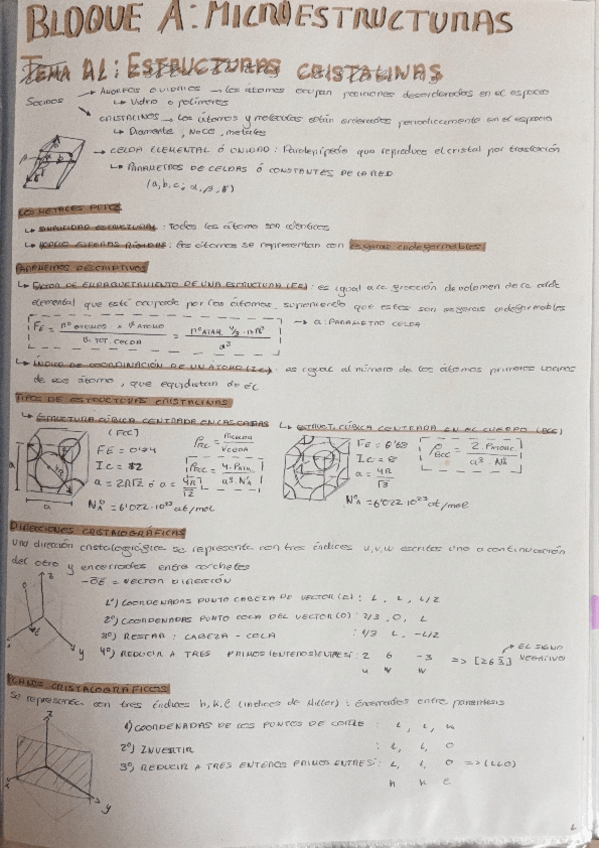 BLOQUE A: MICROESTRUCTURAS
TEMA A1: ESTRUCTURAS CRISTALINAS
SÓLIDOS → AMORFOS O VIDRIOS → los átomos ocupan posiciones desordenadas en el espacio
↳ Vidrio o polímeros
CRISTALINOS → los átomos y moléculas están ordenados periódicamente en el espacio
↳ Diamante, NaCl, metales
→ CELDA ELEMENTAL Ó UNIDAD: Paralepípedo que reproduce el cristal por traslación
↳ PARÁMETROS DE CELDAS Ó CONSTANTES DE LA RED
(a, b, c; α, β, γ)
LOS METALES PUROS
↳ SIMPLICIDAD ESTRUCTURAL: Todos los átomo son idénticos
↳ MODELO ESFERAS RÍGIDAS: los átomos se representan con esferas indeformables
PARÁMETROS DESCRIPTIVOS
↳ FACTOR DE EMPAQUETAMIENTO DE UNA ESTRUCTURA (FE): es igual a la fracción de volumen de la celda
elemental que está ocupada por los átomos, suponiendo que estos son esferas indeformables
FE = nº ÁTOMOS x V ÁTOMO / V. TOT. CELDA = nº ATOM. 4/3 · πR³ / a³ → a: PARÁMETRO CELDA
↳ ÍNDICE DE COORDINACIÓN DE UN ÁTOMO (I.C.): es igual al número de los átomos primeros vecinos
de ese átomo, que equidistan de él
TIPOS DE ESTRUCTURAS CRISTALINAS
↳ ESTRUCTURA CÚBICA CENTRADA EN LAS CARAS (FCC)
FE = 0'74
IC = 12
a = 2R√2 ó a = 4R/√2
ρFCC = 4·PATOM. / a³·Nº A
Nº A = 6'022·10²³ at/mol
↳ ESTRUCT. CÚBICA CENTRADA EN EL CUERPO (BCC)
FE = 0'68
IC = 8
a = 4R/√3
ρBCC = 2·PATOMIC. / a³·Nº A
Nº A = 6'022·10²³ at/mol
DIRECCIONES CRISTALOGRÁFICAS
Una dirección cristalográfica se representa con tres índices u, v, w escritos uno a continuación
del otro y encerrados entre corchetes
-OE = VECTOR DIRECCIÓN
1º) COORDENADAS PUNTO CABEZA DE VECTOR (E): 1, 1, 1/2
2º) COORDENADAS PUNTO COLA DEL VECTOR (O): 2/3, 0, 1
3º) RESTAR: CABEZA - COLA : 1/3 1, -1/2
4º) REDUCIR A TRES PRIMOS (ENTEROS) ENTRE SÍ: 2 6 -3 => [263̄] → EL SIGNO NEGATIVO
u v w
PLANOS CRISTALOGRÁFICOS
Se representa con tres índices h, k, l (índices de Miller): encerrados entre paréntesis
1º) COORDENADAS DE LOS PUNTOS DE CORTE : 1, 1, ∞
2º) INVERTIR : 1, 1, 0
3º) REDUCIR A TRES ENTEROS PRIMOS ENTRE SÍ: 1, 1, 0 => (110)
h k l
x y z
1